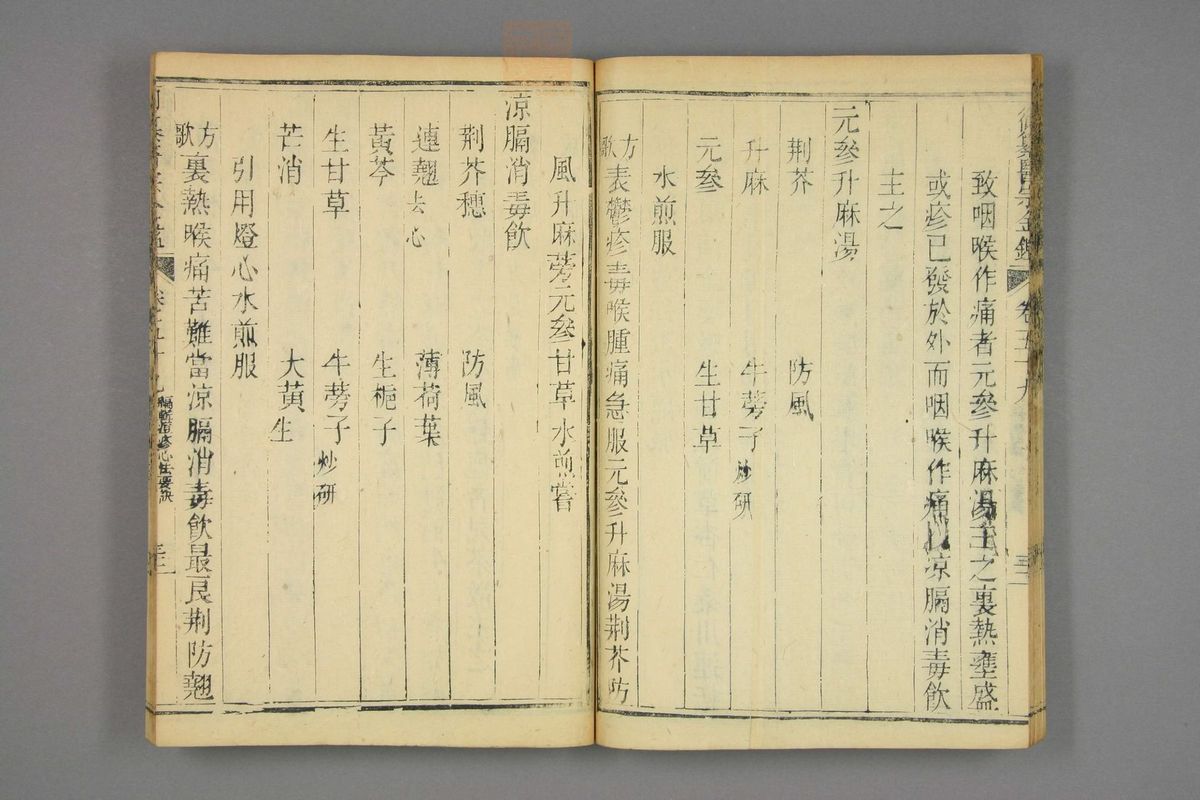 醫宗金鑑 卷五十九
致咽喉作痛者元參升麻湯主之裏熱壅盛
或疹已發於外而咽喉作痛以凉膈消毒飲
主之
元參升麻湯
荆芥 防風
升麻 牛蒡子炒研
元參 生甘草
水煎服
方歌 表鬱疹毒喉腫痛急服元參升麻湯荆芥防
風升麻蒡元參甘草水煎嘗
凉膈消毒飲
荆芥穗 防風
連翹去心 薄荷葉
黃芩 生梔子
生甘草 牛蒡子炒研
芒消 大黃生
引用燈心水煎服
方歌 裏熱喉痛苦難當凉膈消毒飲最良荆防翹
卷五十九 編輯痘疹心法要訣